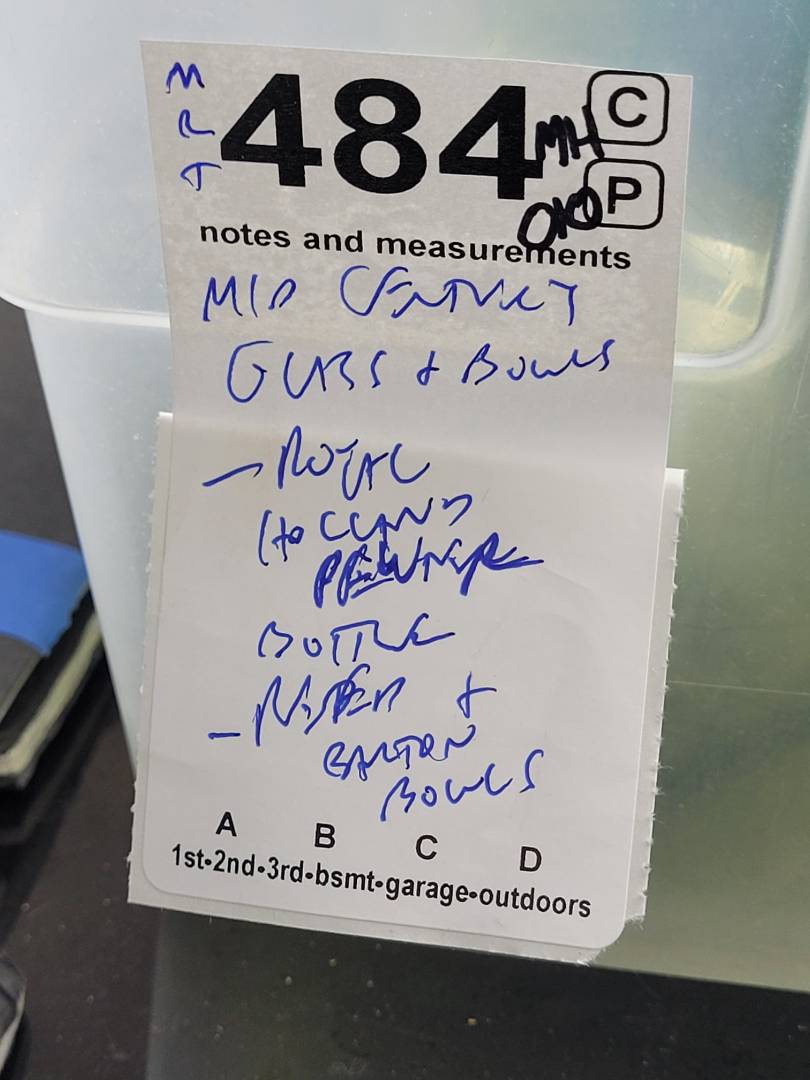 M R T
484
MH C
OKO P
notes and measurements
MID CENTURY
GLASS + BOWLS
- ROYAL
HOLLAND
PEWTER
BOTTLE
- REED +
BARTON
BOWLS
A B C D
1st•2nd•3rd•bsmt•garage•outdoors